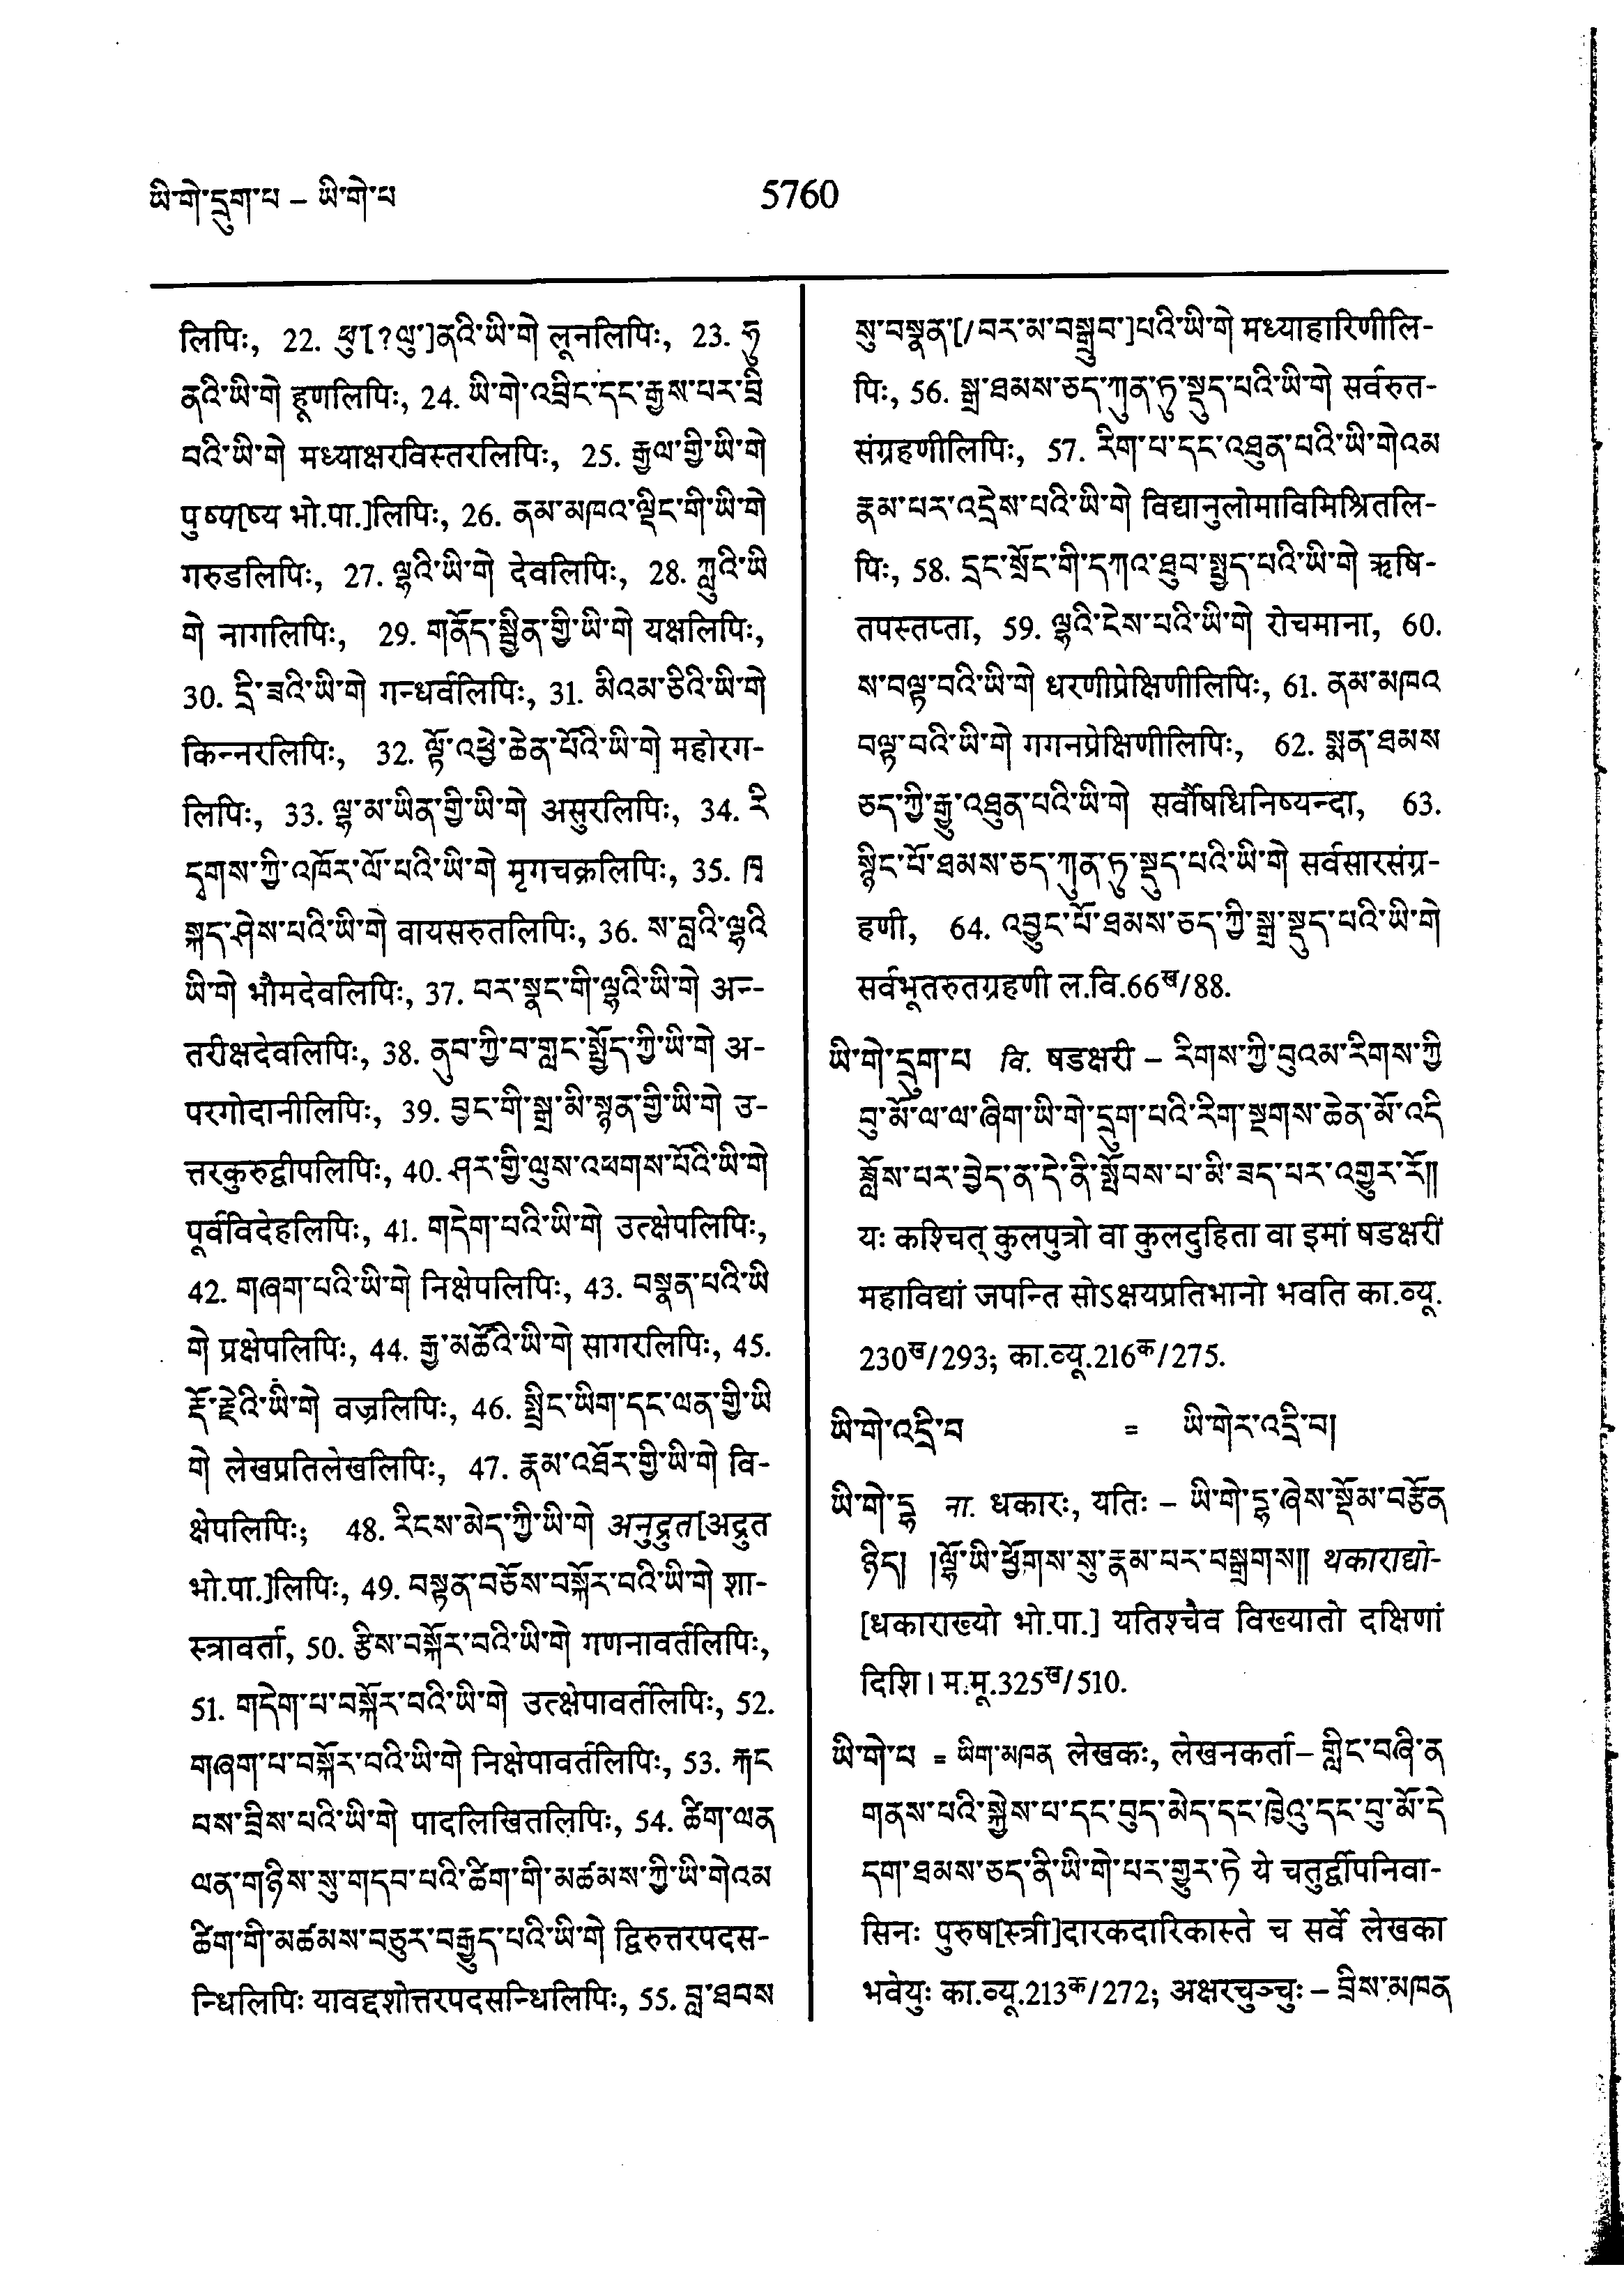 ཡི་གེ་དྲུག་པ – ཡི་གེ་པ
5760
लिपिः, 22. ཕུ[?ལུ་]ནའི་ཡི་གེ लूनलिपिः, 23. ཧུ
ནའི་ཡི་གེ हूणलिपिः, 24. ཡི་གེ་འབྲིང་དང་རྒྱས་པར་བྲི
བའི་ཡི་གེ मध्याक्षरविस्तरलिपिः, 25. རྒྱལ་གྱི་ཡི་གེ
पुष्प[ष्य भो.पा.]लिपिः, 26. ནམ་མཁའ་ལྡིང་གི་ཡི་གེ
गरुडलिपिः, 27. ལྷའི་ཡི་གེ देवलिपिः, 28. ཀླུའི་ཡི
གེ नागलिपिः, 29. གནོད་སྦྱིན་གྱི་ཡི་གེ यक्षलिपिः,
30. དྲི་ཟའི་ཡི་གེ गन्धर्वलिपिः, 31. མིའམ་ཅིའི་ཡི་གེ
किन्नरलिपिः, 32. ལྟོ་འཕྱེ་ཆེན་པོའི་ཡི་གེ महोरग-
लिपिः, 33. ལྷ་མ་ཡིན་གྱི་ཡི་གེ असुरलिपिः, 34. རི
དྭགས་ཀྱི་འཁོར་ལོ་པའི་ཡི་གེ मृगचक्रलिपिः, 35. ཁྭ
སྐད་ཤེས་པའི་ཡི་གེ वायसरुतलिपिः, 36. ས་བླའི་ལྷའི
ཡི་གེ भौमदेवलिपिः, 37. བར་སྣང་གི་ལྷའི་ཡི་གེ अन्-
तरीक्षदेवलिपिः, 38. ནུབ་ཀྱི་བ་གླང་སྤྱོད་ཀྱི་ཡི་གེ अ-
परगोदानीलिपिः, 39. བྱང་གི་སྒྲ་མི་སྙན་གྱི་ཡི་གེ उ-
त्तरकुरुद्वीपलिपिः, 40. ཤར་གྱི་ལུས་འཕགས་པོའི་ཡི་གེ
पूर्वविदेहलिपिः, 41. གདེག་པའི་ཡི་གེ उत्क्षेपलिपिः,
42. གཞག་པའི་ཡི་གེ निक्षेपलिपिः, 43. བསྣན་པའི་ཡི
གེ प्रक्षेपलिपिः, 44. རྒྱ་མཚོའི་ཡི་གེ सागरलिपिः, 45.
རྡོ་རྗེའི་ཡི་གེ वज्रलिपिः, 46. སྤྲིང་ཡིག་དང་ལན་གྱི་ཡི
གེ लेखप्रतिलेखलिपिः, 47. རྣམ་འཐོར་གྱི་ཡི་གེ वि-
क्षेपलिपिः; 48. རིངས་མེད་ཀྱི་ཡི་གེ अनुद्रुत[अद्रुत
भो.पा.]लिपिः, 49. བསྟན་བཅོས་བསྐོར་བའི་ཡི་གེ शा-
स्त्रावर्ता, 50. རྩིས་བསྐོར་བའི་ཡི་གེ गणनावर्तलिपिः,
51. གདེག་པ་བསྐོར་བའི་ཡི་གེ उत्क्षेपावर्तलिपिः, 52.
གཞག་པ་བསྐོར་བའི་ཡི་གེ निक्षेपावर्तलिपिः, 53. རྐང
བས་བྲིས་པའི་ཡི་གེ पादलिखितलिपिः, 54. ཚིག་ལན
ལན་གཉིས་སུ་གདབ་པའི་ཚིག་གི་མཚམས་ཀྱི་ཡི་གེའམ
ཚིག་གི་མཚམས་བཅུར་བརྒྱུད་པའི་ཡི་གེ द्विरुत्तरपदस-
न्धिलिपिः यावद्दशोत्तरपदसन्धिलिपिः, 55. བླ་ཐབས
སུ་བསྣན་[/བར་མ་བསྒྲུབ་]པའི་ཡི་གེ मध्याहारिणीलि-
पिः, 56. སྒྲ་ཐམས་ཅད་ཀུན་ཏུ་སྡུད་པའི་ཡི་གེ सर्वरुत-
संग्रहणीलिपिः, 57. རིག་པ་དང་འཐུན་པའི་ཡི་གེའམ
རྣམ་པར་འདྲེས་པའི་ཡི་གེ विद्यानुलोमाविमिश्रितलि-
पिः, 58. དྲང་སྲོང་གི་དཀའ་ཐུབ་སྤྱད་པའི་ཡི་གེ ऋषि-
तपस्तप्ता, 59. ལྷའི་ངེས་པའི་ཡི་གེ रोचमाना, 60.
ས་བལྟ་བའི་ཡི་གེ धरणीप्रेक्षिणीलिपिः, 61. ནམ་མཁའ
བལྟ་བའི་ཡི་གེ गगनप्रेक्षिणीलिपिः, 62. སྨན་ཐམས
ཅད་ཀྱི་རྒྱུ་འཐུན་པའི་ཡི་གེ सर्वौषधिनिष्यन्दा, 63.
སྙིང་པོ་ཐམས་ཅད་ཀུན་ཏུ་སྡུད་པའི་ཡི་གེ सर्वसारसंग्र-
हणी, 64. འབྱུང་པོ་ཐམས་ཅད་ཀྱི་སྒྲ་སྡུད་པའི་ཡི་གེ
सर्वभूतरुतग्रहणी ल.वि.66ख/88.
ཡི་གེ་དྲུག་པ वि. षडक्षरी – རིགས་ཀྱི་བུའམ་རིགས་ཀྱི
བུ་མོ་ལ་ལ་ཞིག་ཡི་གེ་དྲུག་པའི་རིག་སྔགས་ཆེན་མོ་འདི
ཟློས་པར་བྱེད་ན་དེ་ནི་སྤོབས་པ་མི་ཟད་པར་འགྱུར་རོ།།
यः कश्चित् कुलपुत्रो वा कुलदुहिता वा इमां षडक्षरीं
महाविद्यां जपन्ति सोऽक्षयप्रतिभानो भवति का.व्यू.
230ख/293; का.व्यू.216क/275.
ཡི་གེ་འདྲི་བ = ཡི་གེར་འདྲི་བ།
ཡི་གེ་དྷ ना. धकारः, यतिः – ཡི་གེ་དྷ་ཞེས་སྡོམ་བརྩོན
ཉིད། །ལྷོ་ཡི་ཕྱོགས་སུ་རྣམ་པར་བསྒྲགས།། थकाराद्यो-
[धकाराख्यो भो.पा.] यतिश्चैव विख्यातो दक्षिणां
दिशि। म.मू.325ख/510.
ཡི་གེ་པ = ཡིག་མཁན लेखकः, लेखनकर्ता– གླིང་བཞི་ན
གནས་པའི་སྐྱེས་པ་དང་བུད་མེད་དང་ཁྱེའུ་དང་བུ་མོ་དེ
དག་ཐམས་ཅད་ནི་ཡི་གེ་པར་གྱུར་ཏེ ये चतुर्द्वीपनिवा-
सिनः पुरुष[स्त्री]दारकदारिकास्ते च सर्वे लेखका
भवेयुः का.व्यू.213क/272; अक्षरचुञ्चुः – བྲིས་མཁན